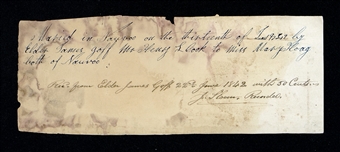 Married in Nauvoo on the thirteenth of Instant by
Elder James Goff Mr Henry L Cook to Miss Mary Hoag
both of Nauvoo
Rec. from Elder James Goff 22nd June 1842 with 50 Cents
J. Sloan Recorder